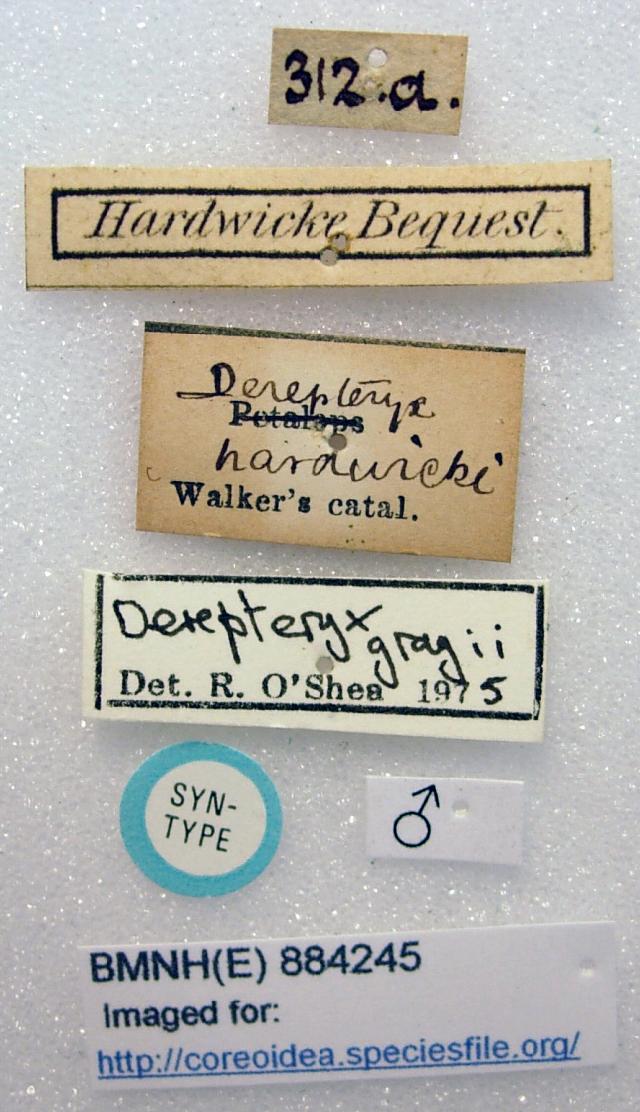 312.a.
Hardwicke Bequest.
Derepteryx
Petalops
hardwicki
Walker's catal.
Derepteryx
grayii
Det. R. O'Shea 1975
SYN-
TYPE
♂
BMNH(E) 884245
Imaged for:
http://coreoidea.speciesfile.org/